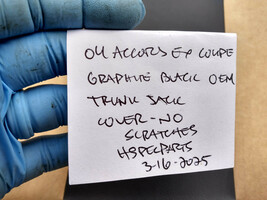 04 ACCORD EX COUPE
GRAPHITE BLACK OEM
TRUNK JACK
COVER-NO
SCRATCHES
HSPECPARTS
3-16-2025